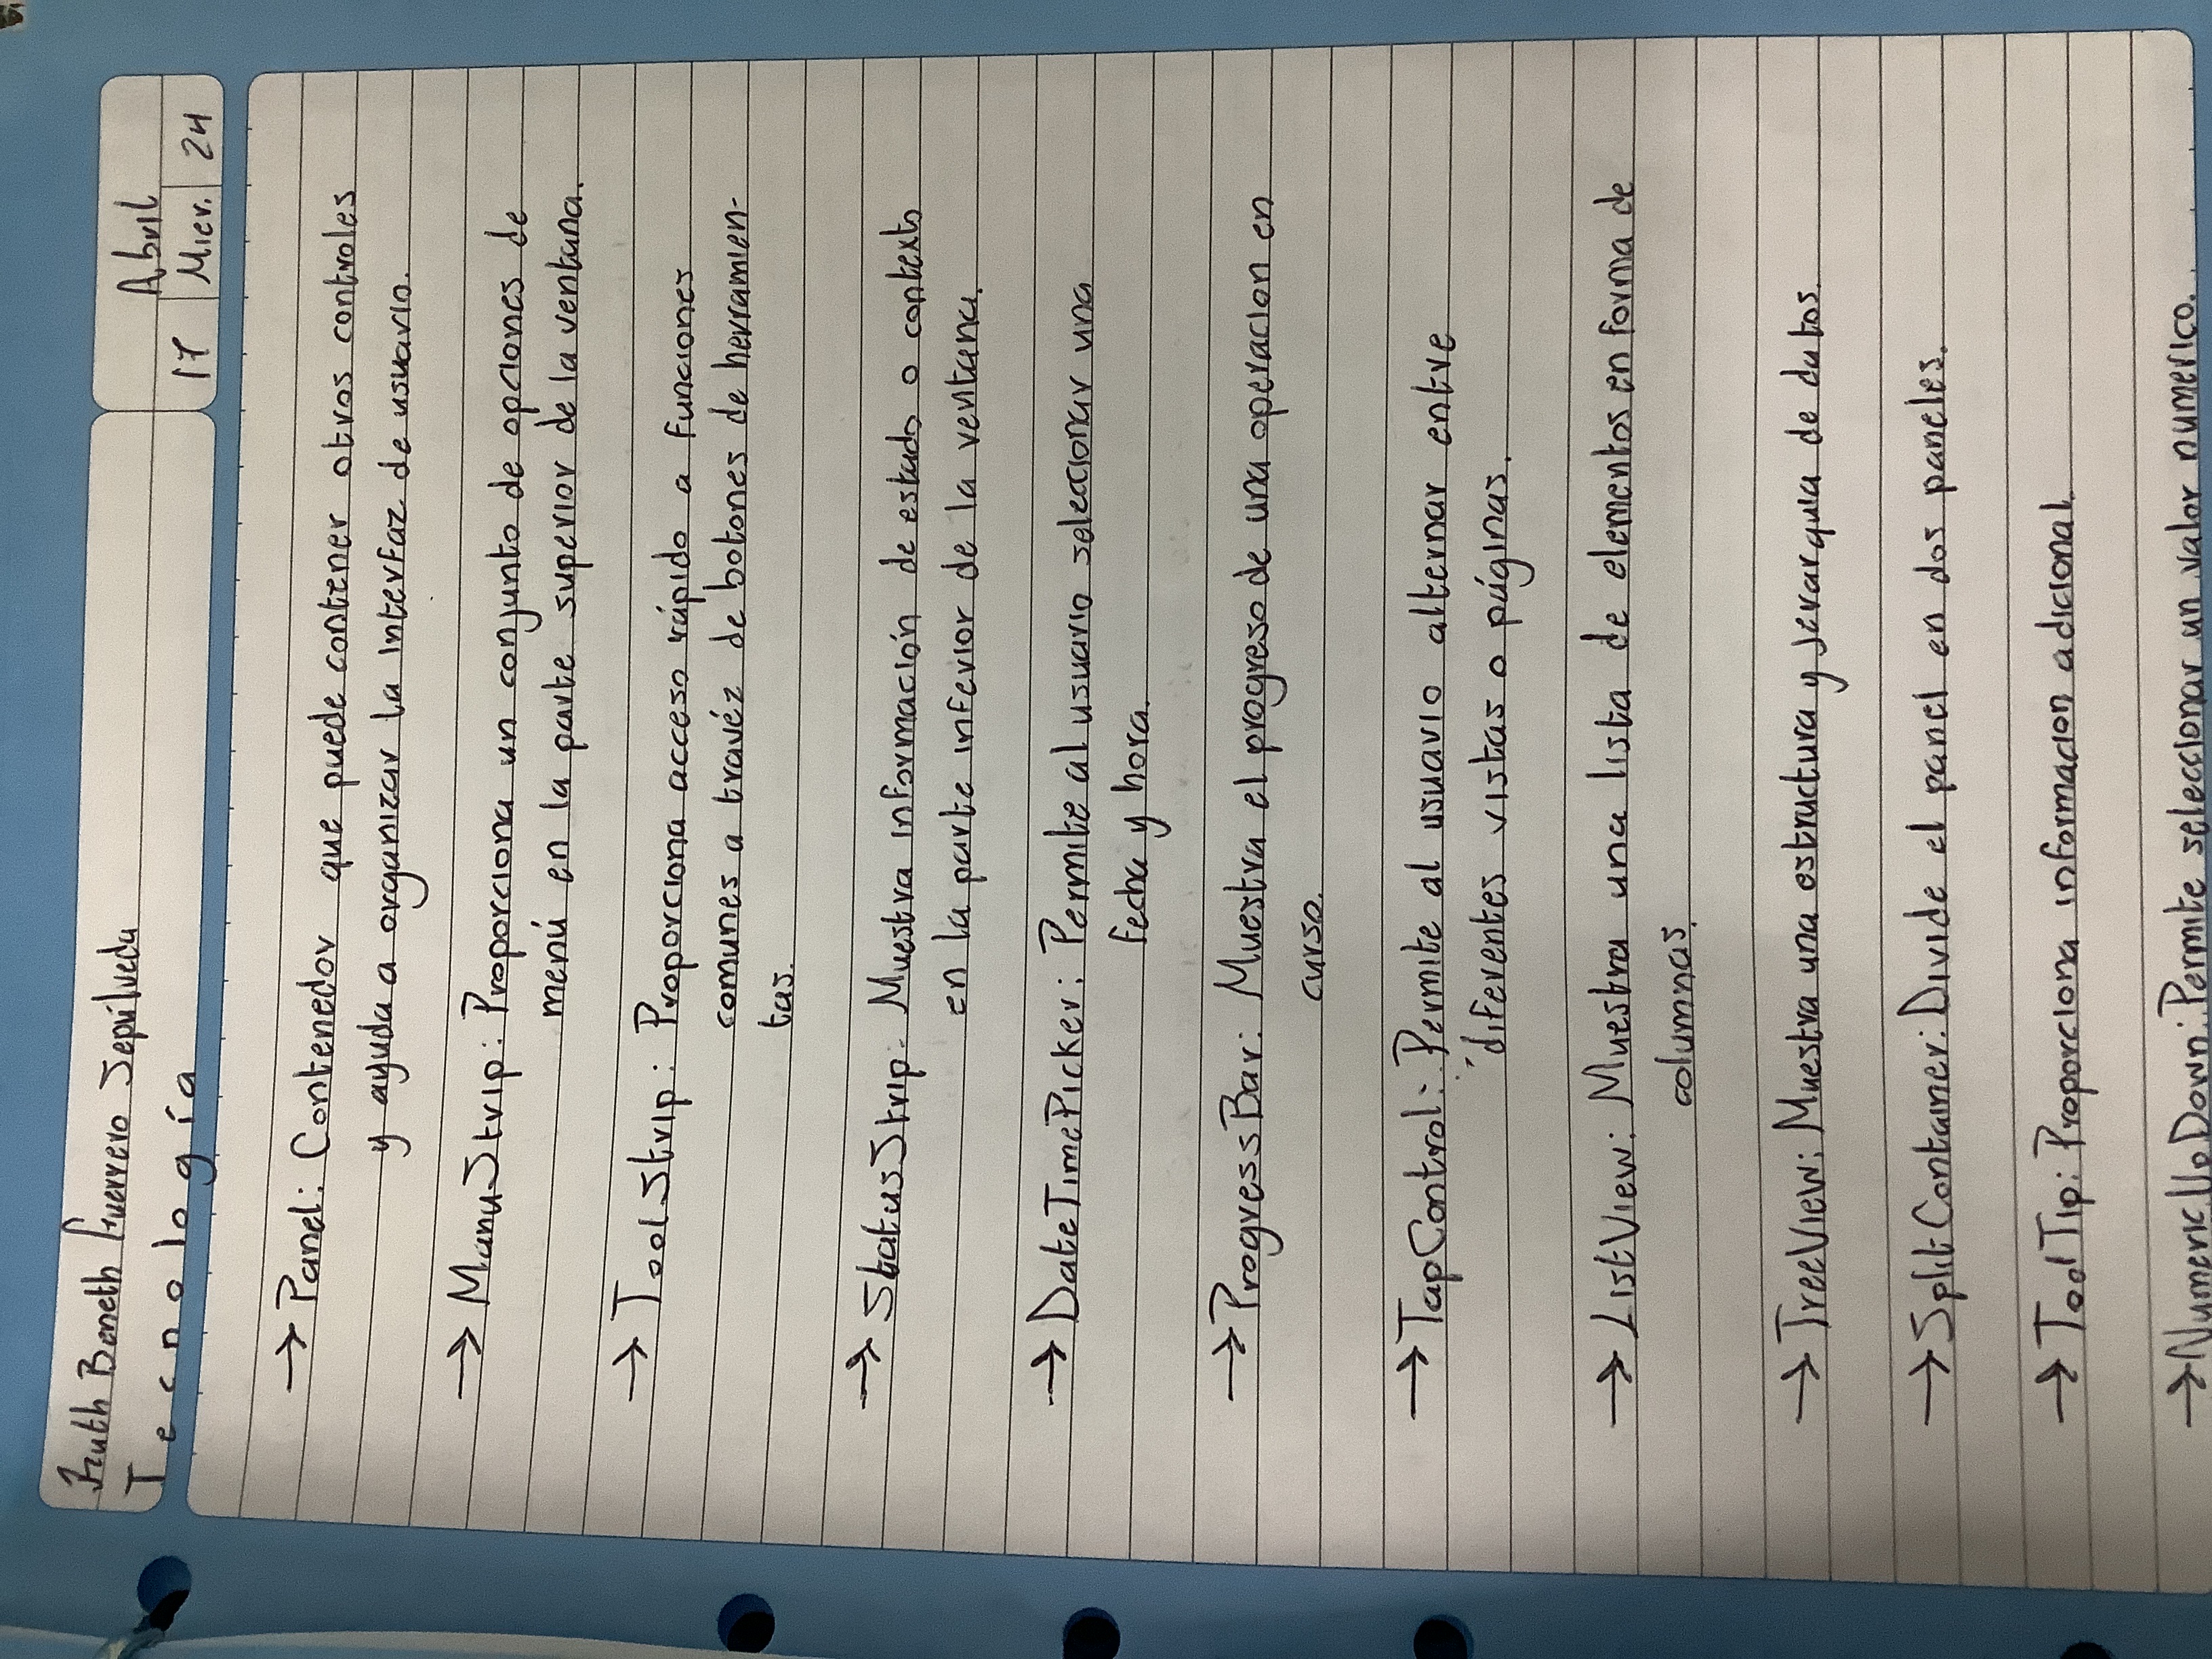 Ruth Baneth Guerrero Sepúlveda
Tecnología
Abril
17 Mier. 24
→ Panel: Contenedor que puede contener otros controles
y ayuda a organizar la interfaz de usuario.
→ ManuStrip: Proporciona un conjunto de opciones de
menú en la parte superior de la ventana.
→ ToolStrip: Proporciona acceso rápido a funciones
comunes a travéz de botones de herramien-
tas.
→ StatusStrip: Muestra información de estado o contexto
en la parte inferior de la ventana.
→ DateTimePicker: Permite al usuario seleccionar una
fecha y hora.
→ ProgressBar: Muestra el progreso de una operacion en
curso.
→ TapControl: Permite al usuario alternar entre
diferentes vistas o páginas.
→ ListView: Muestra una lista de elementos en forma de
columnas.
→ TreeView: Muestra una estructura y jerarquia de datos.
→ SplitContainer: Divide el panel en dos paneles.
→ ToolTip: Proporciona informacion adicional
→ NumericUpDown: Permite seleccionar un valor numerico.